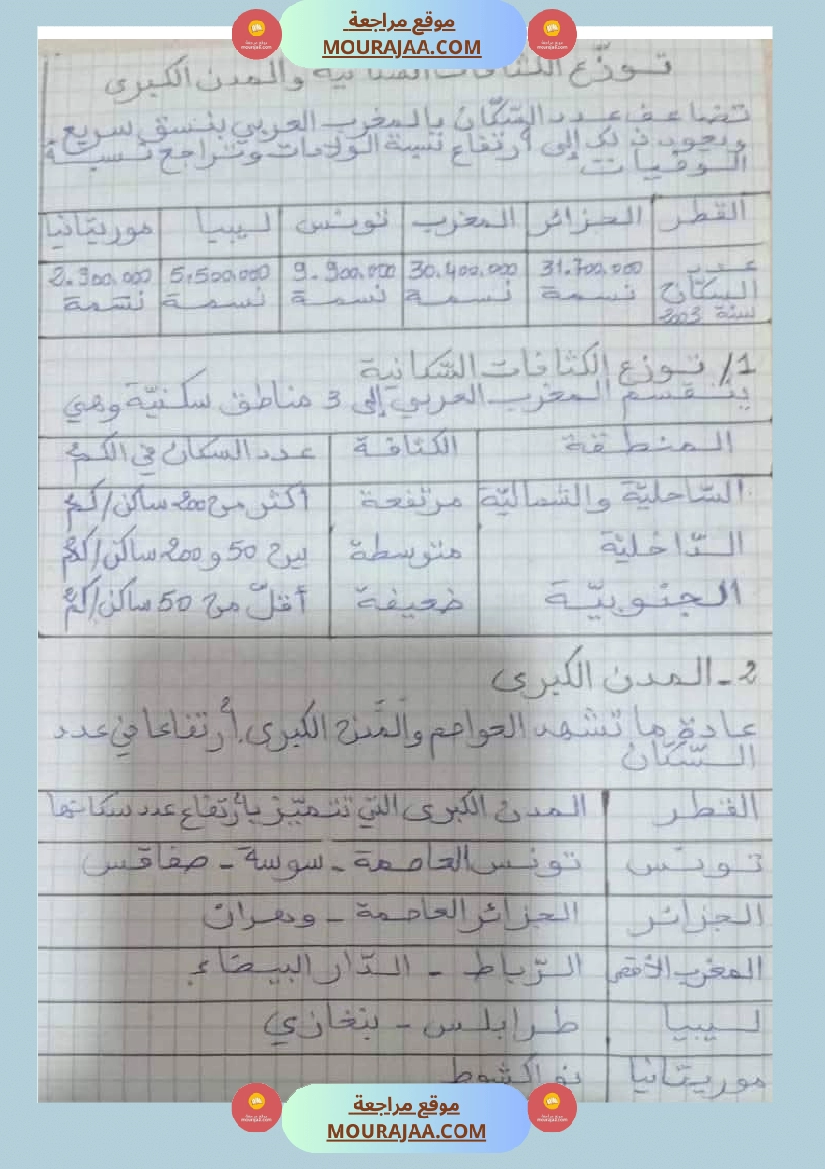 موقع مراجعة
MOURAJAA.COM
توزّع الكثافات السكانية والمدن الكبرى
تضاعف عدد السّكّان بالمغرب العربي بنسق سريع
ويعود ذلك إلى أرتفاع نسبة الولادات وتراجع نسبة
الوفيات
القطر الجزائر المغرب تونس ليبيا موريتانيا
عدد 31.700.000 30.400.000 9.900.000 5.500.000 2.900.000
السكّان نسمة نسمة نسمة نسمة نسمة
سنة 2003
1/ توزع الكثافات السّكانية
ينقسم المغرب العربي إلى 3 مناطق سكنيّة وهي
المنطقة الكثافة عدد السكان في الكم²
السّاحليّة والشماليّة مرتفعة أكثر من 200 ساكن/كم²
الدّاخليّة متوسطة بين 50 و 200 ساكن/كم²
الجنوبيّة ضعيفة أقلّ من 50 ساكن/كم²
2 - المدن الكبرى
عادة ما تشهد العواصم والمُدن الكبرى أرتفاعا في عدد
السّكّان
القطر المدن الكبرى التي تتميّز بأرتفاع عدد سكانها
تونس تونس العاصمة - سوسة - صفاقس
الجزائر الجزائر العاصمة - وهران
المغرب الأقصى الرّباط - الدّار البيضاء
ليبيا طرابلس - بنغازي
موريتانيا نواكشوط
موقع مراجعة
MOURAJAA.COM